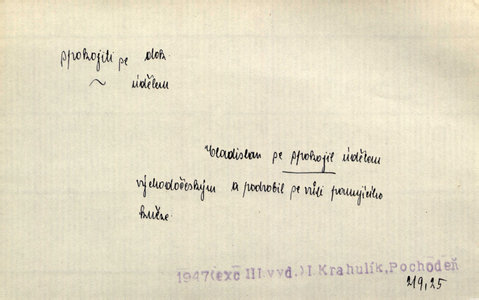 spokojiti se dok.
~ údělem
Vladislav se spokojil údělem
východočeským a podrobil se vůli panujícího
knížete.
1947(exc III.vyd.) I. Krahulík, Pochodeň
219,25